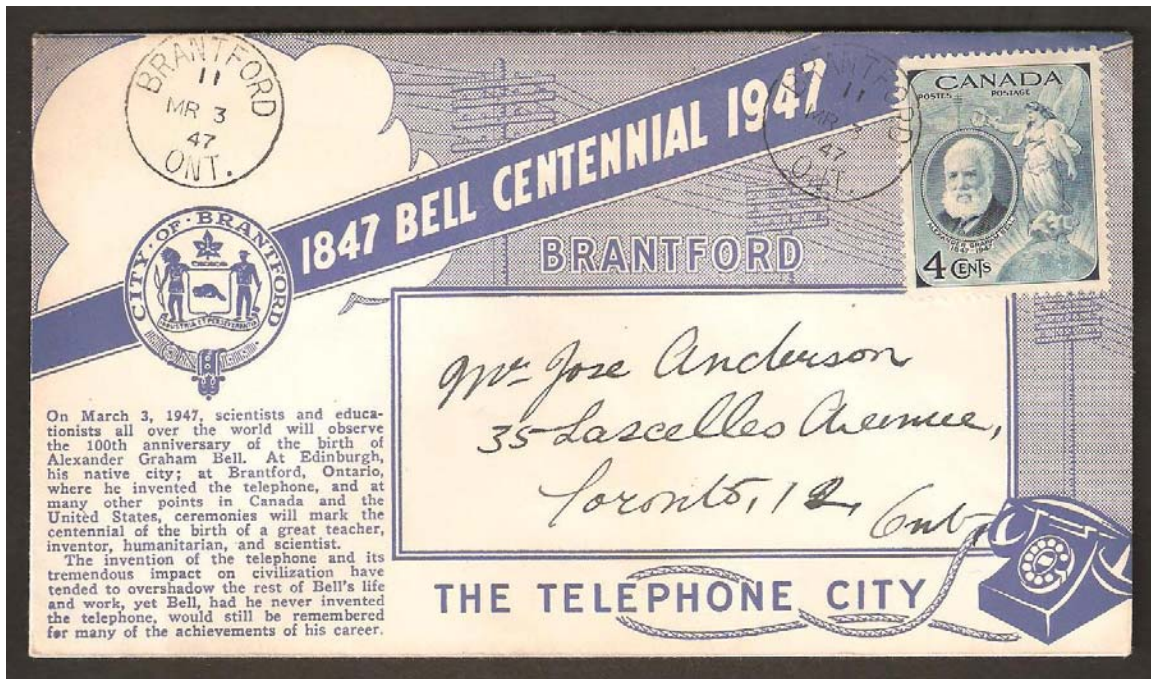 BRANTFORD
11
MR 3
47
ONT.
BRANTFORD
11
MR 3
47
ONT.
CANADA
POSTES POSTAGE
ALEXANDER GRAHAM BELL
1847-1947
4 CENTS
1847 BELL CENTENNIAL 1947
BRANTFORD
CITY · OF · BRANTFORD
INDUSTRIA ET PERSEVERANTIA
Mr Jose Anderson
35 Lascelles Avenue,
Toronto, 12, Ont.
On March 3, 1947, scientists and educa-
tionists all over the world will observe
the 100th anniversary of the birth of
Alexander Graham Bell. At Edinburgh,
his native city; at Brantford, Ontario,
where he invented the telephone, and at
many other points in Canada and the
United States, ceremonies will mark the
centennial of the birth of a great teacher,
inventor, humanitarian, and scientist.
The invention of the telephone and its
tremendous impact on civilization have
tended to overshadow the rest of Bell's life
and work, yet Bell, had he never invented
the telephone, would still be remembered
for many of the achievements of his career.
THE TELEPHONE CITY